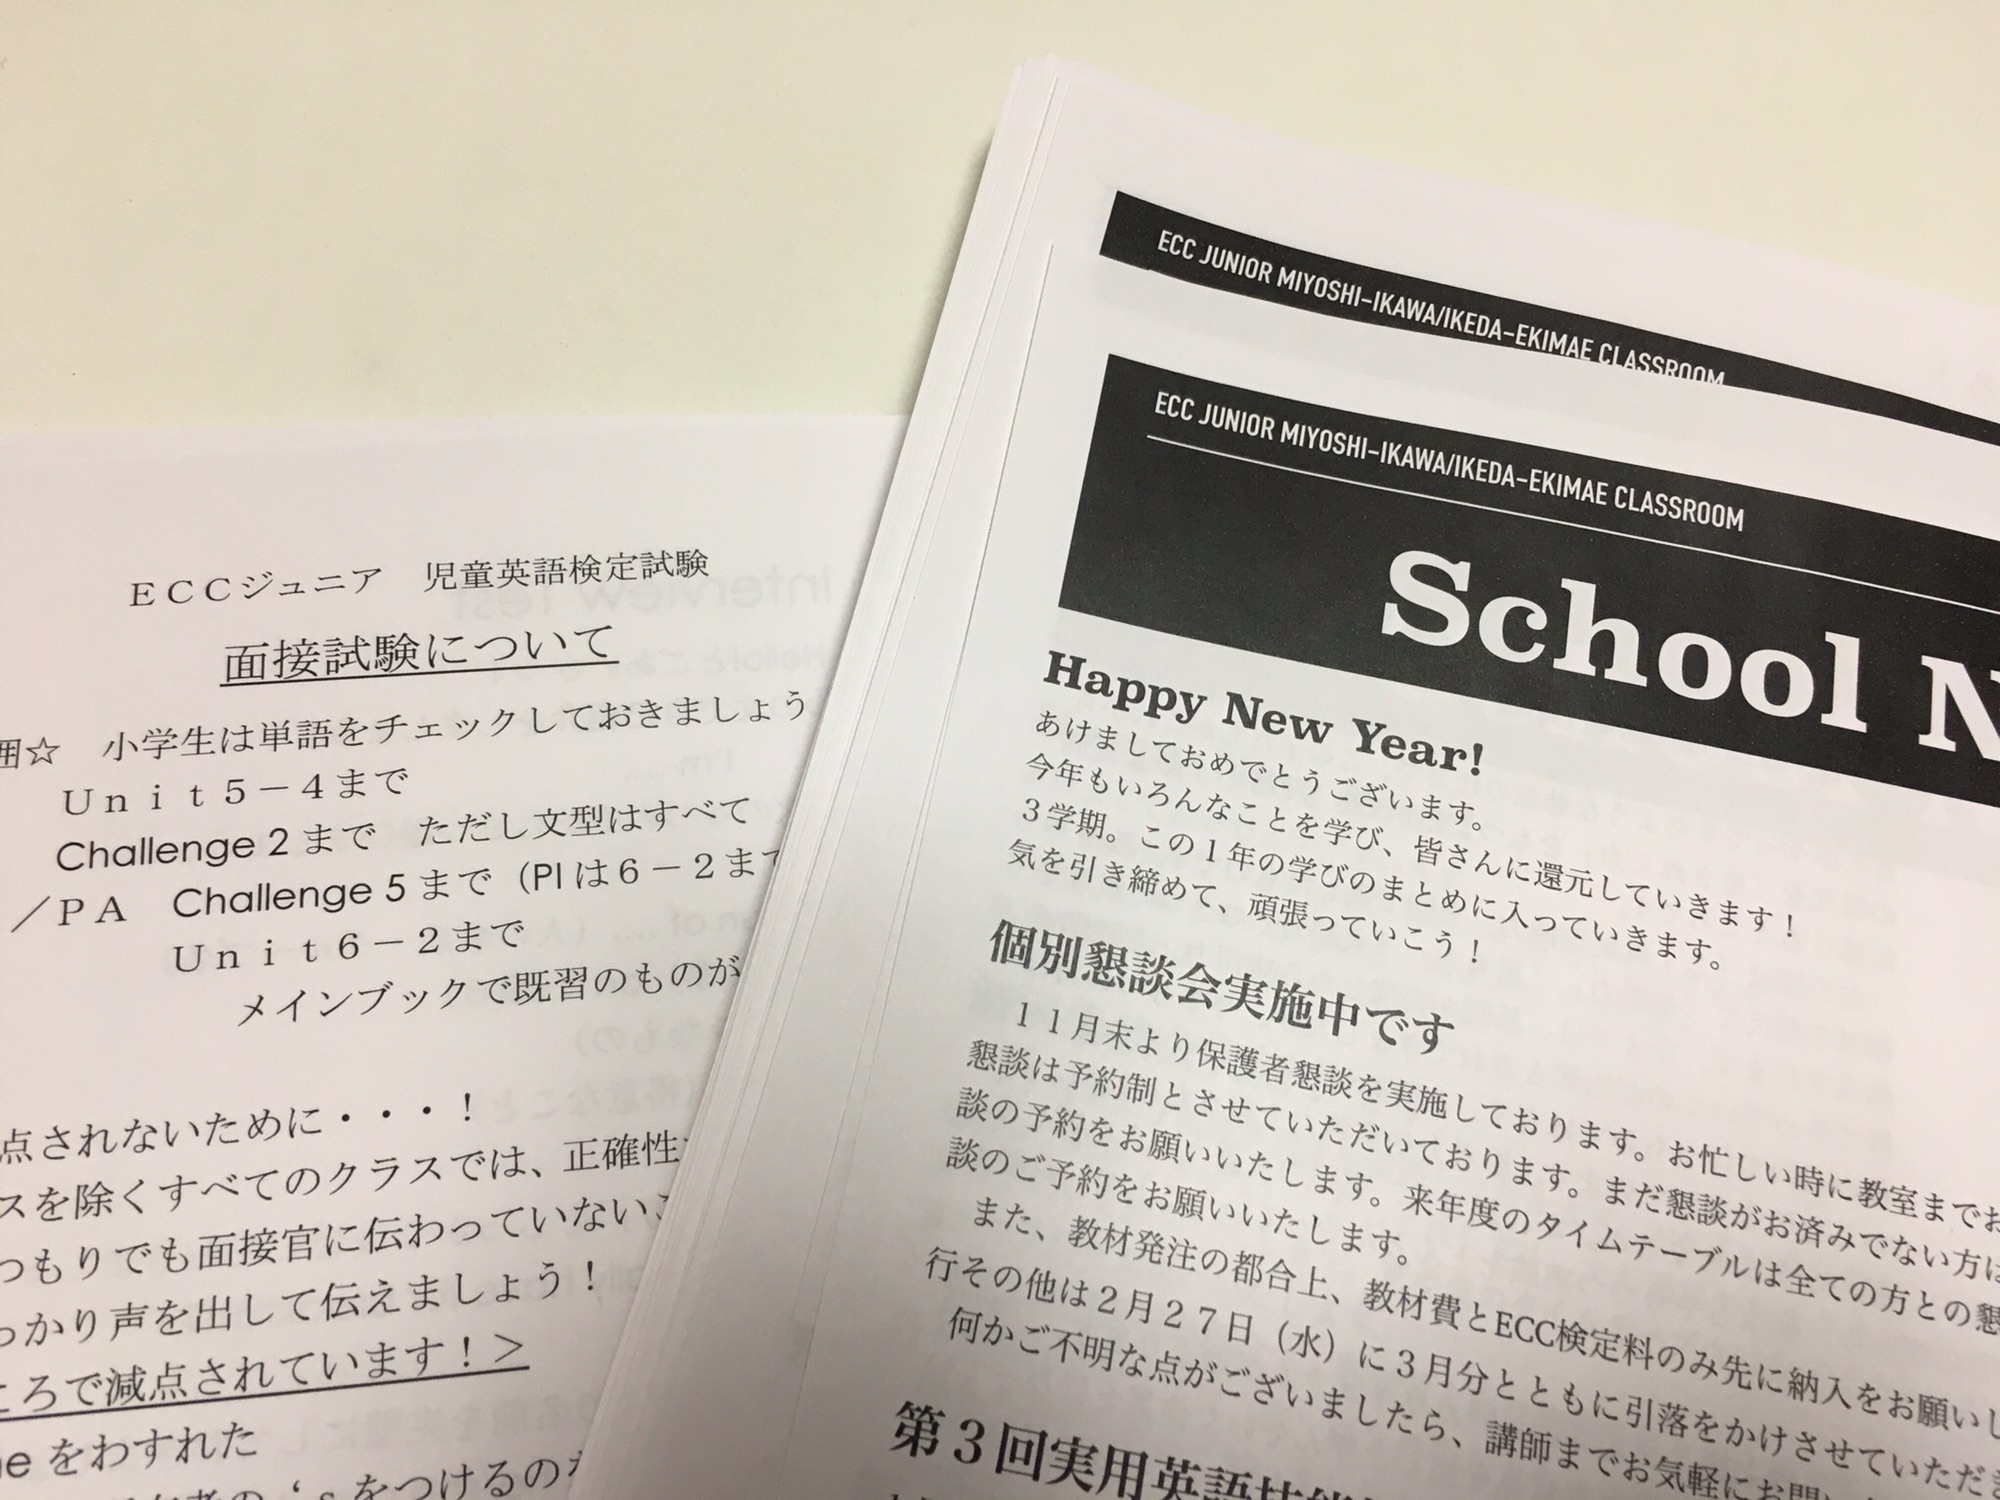 ECCジュニア　児童英語検定試験
面接試験について
囲☆　小学生は単語をチェックしておきましょう
Ｕｎｉｔ５－４まで
Challenge 2 まで　ただし文型はすべて
／ＰＡ　Challenge 5 まで（PI は６－２まで
Ｕｎｉｔ６－２まで
メインブックで既習のものが
点されないために・・・！
スを除くすべてのクラスでは、正確性
つもりでも面接官に伝わっていない
っかり声を出して伝えましょう！
ころで減点されています！＞
をわすれた
をつけるの
ECC JUNIOR MIYOSHI-IKAWA/IKEDA-EKIMAE CLASSROOM
ECC JUNIOR MIYOSHI-IKAWA/IKEDA-EKIMAE CLASSROOM
School N
Happy New Year!
あけましておめでとうございます。
今年もいろんなことを学び、皆さんに還元していきます！
３学期。この１年の学びのまとめに入っていきます。
気を引き締めて、頑張っていこう！
個別懇談会実施中です
１１月末より保護者懇談を実施しております。お忙しい時に教室までお
懇談は予約制とさせていただいております。まだ懇談がお済みでない方は
談の予約をお願いいたします。来年度のタイムテーブルは全ての方との懇
談のご予約をお願いいたします。
また、教材発注の都合上、教材費とECC検定料のみ先に納入をお願いし
行その他は２月２７日（水）に３月分とともに引落をかけさせていただき
何かご不明な点がございましたら、講師までお気軽にお問い
第３回実用英語技能